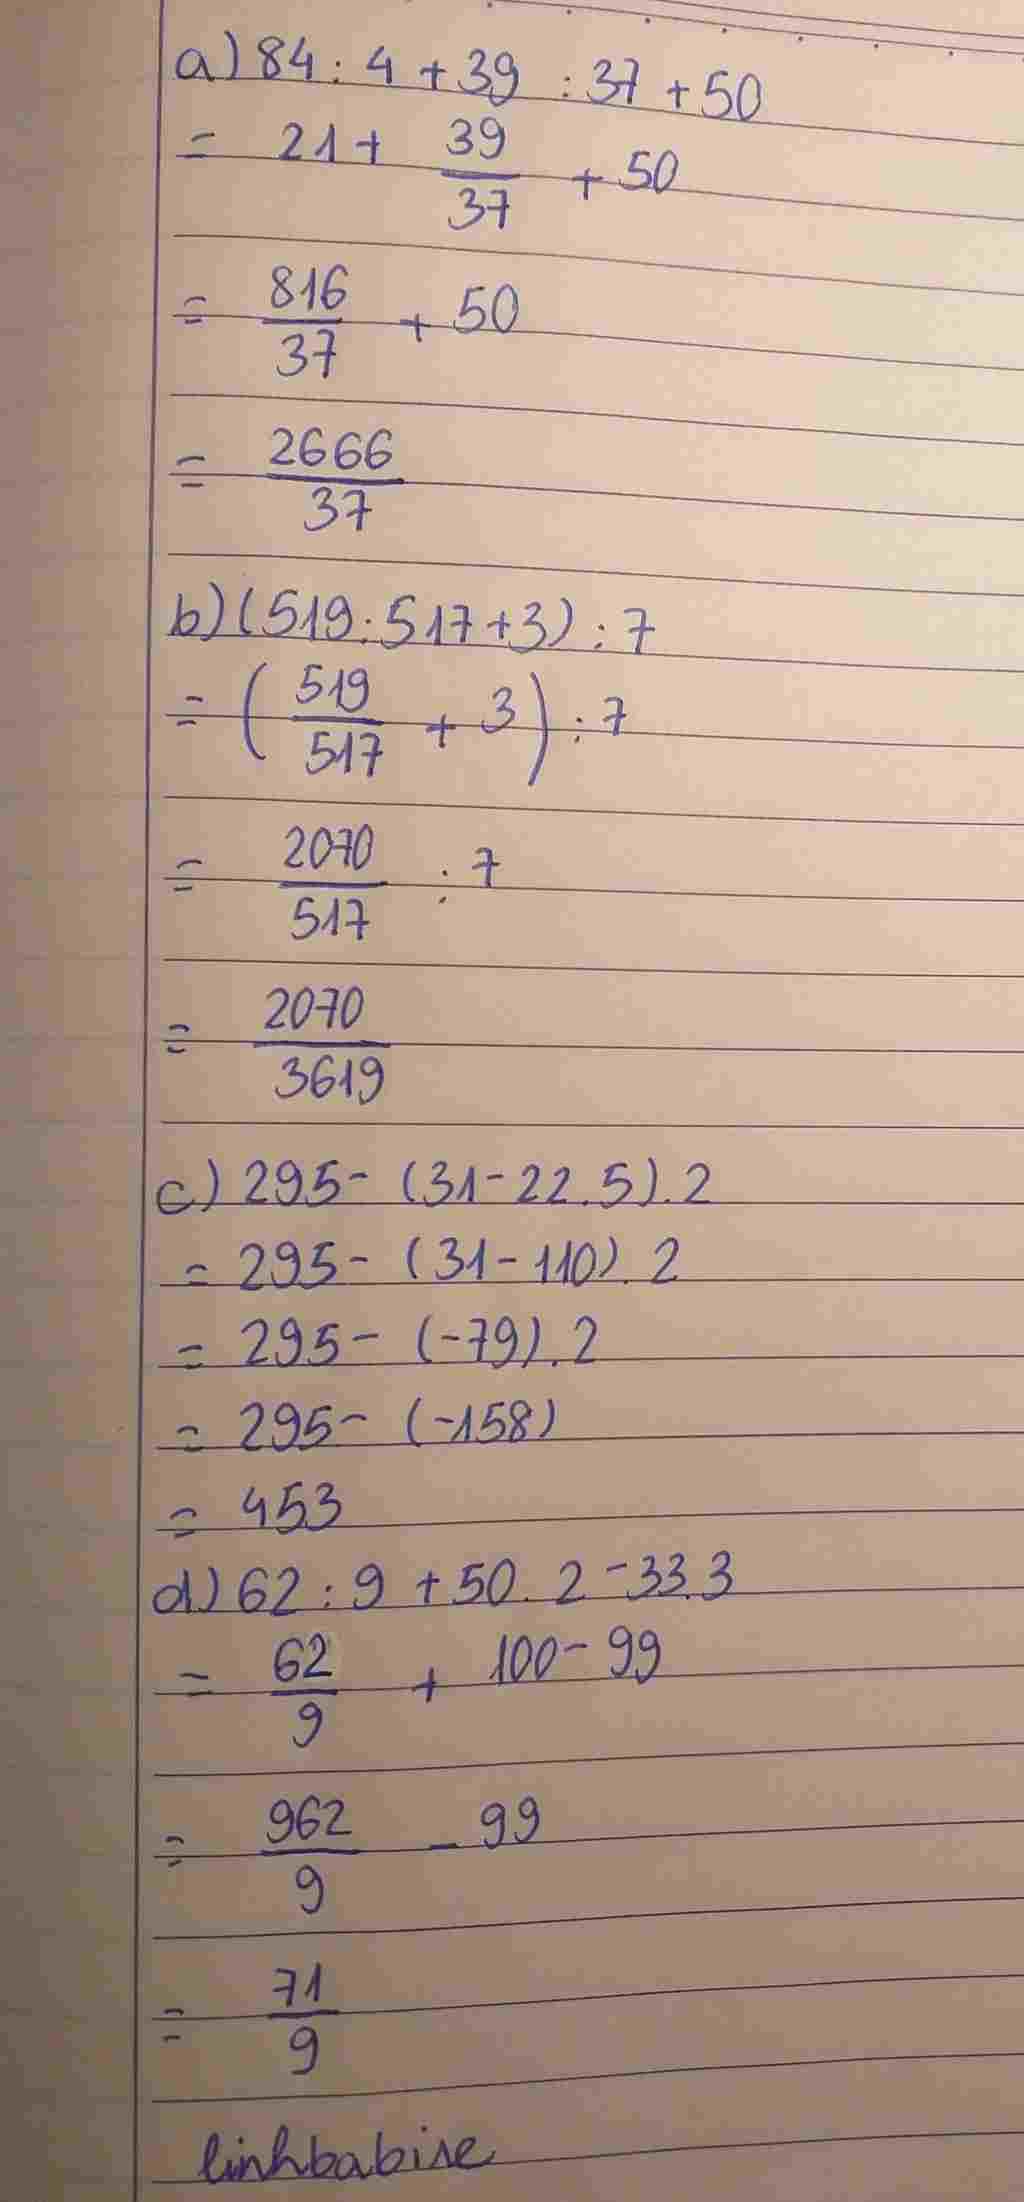 a) 84 : 4 + 39 : 37 + 50
= 21 + 39/37 + 50
= 816/37 + 50
= 2666/37
b) (519 : 517 + 3) : 7
= (519/517 + 3) : 7
= 2070/517 : 7
= 2070/3619
c) 295 - (31 - 22.5).2
= 295 - (31 - 110).2
= 295 - (-79).2
= 295 - (-158)
= 453
d) 62 : 9 + 50.2 - 33.3
= 62/9 + 100 - 99
= 962/9 - 99
= 71/9
linhbabine